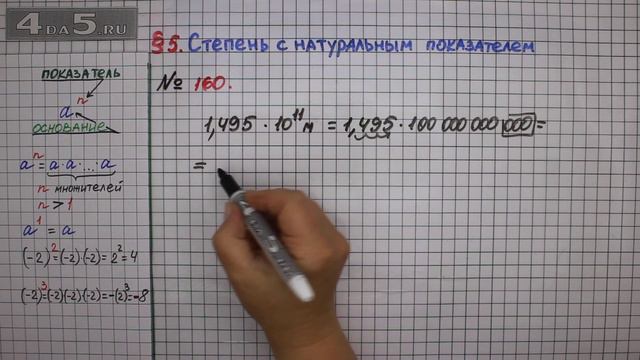 4DA5.RU
§5. Степень с натуральным показателем
№ 160.
показатель
aⁿ
основание
aⁿ = a·a·...·a
n множителей
n > 1
a¹ = a
(-2)² = (-2)·(-2) = 2² = 4
(-2)³ = (-2)(-2)·(-2) = -(2)³ = -8
1,495 · 10¹¹ м = 1,495 · 100 000 000 000 =
=